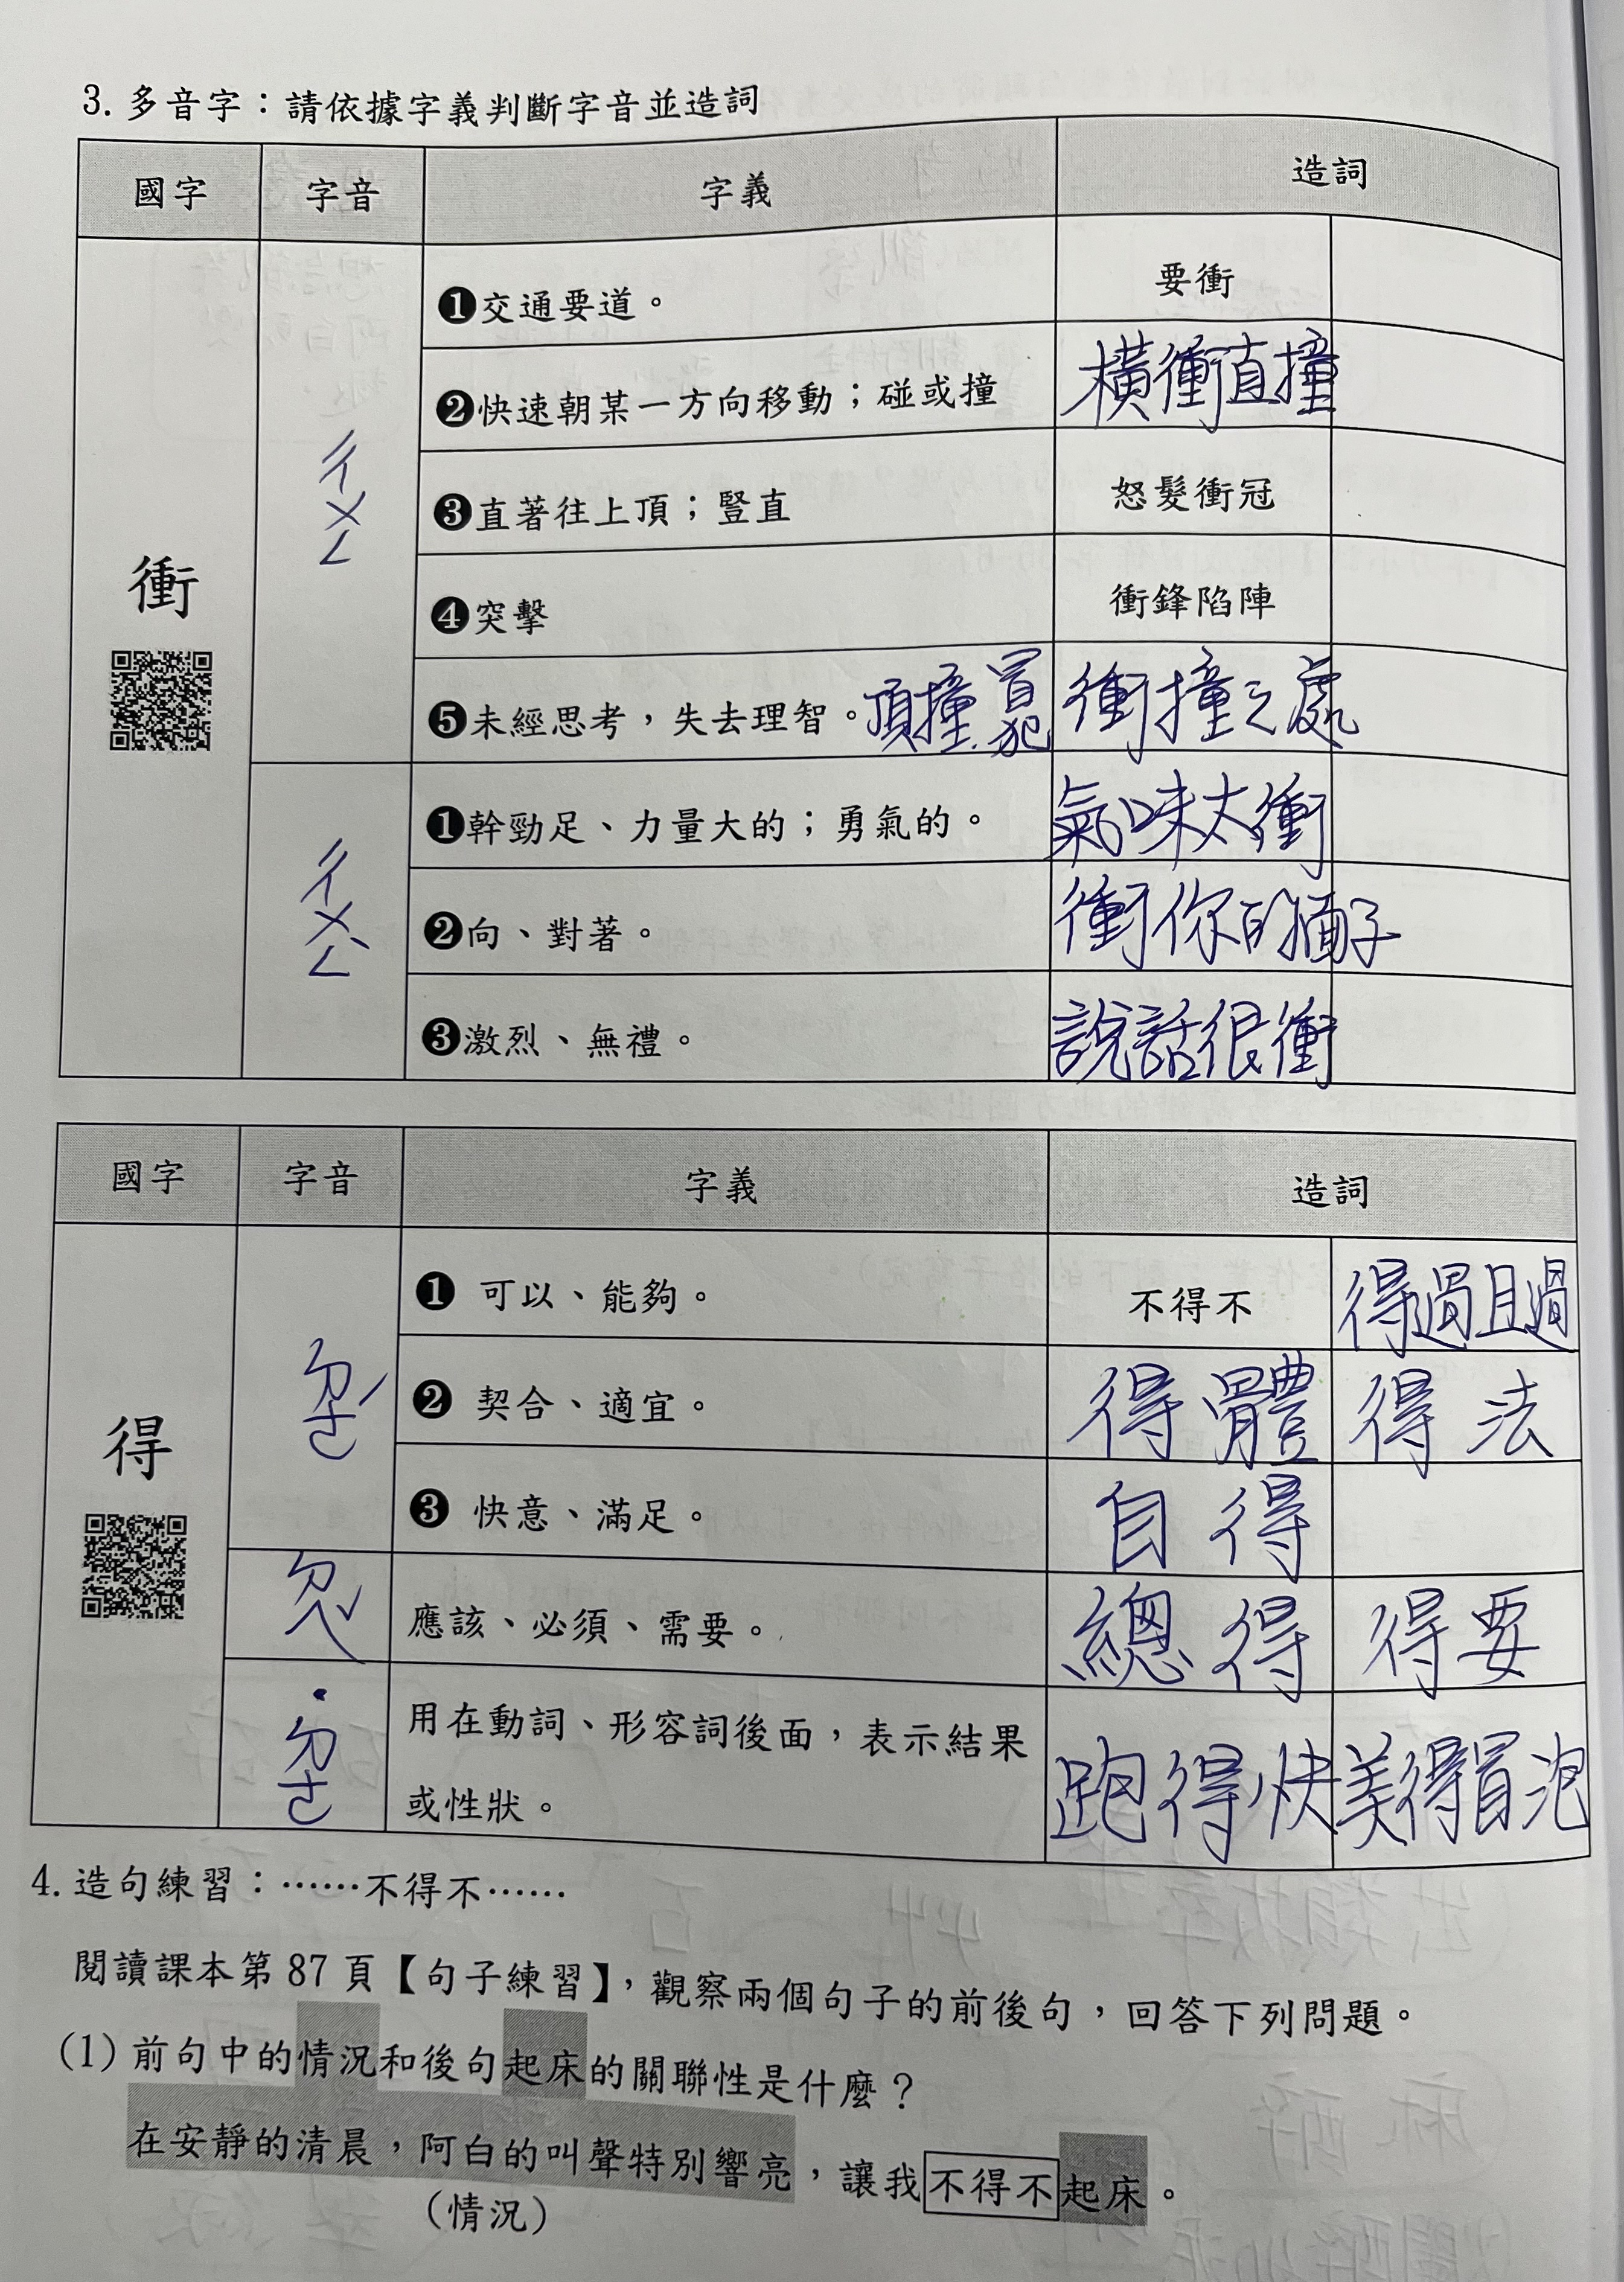 3. 多音字：請依據字義判斷字音並造詞
國字 字音 字義 造詞
衝 ㄔㄨㄥ
❶交通要道。 要衝
❷快速朝某一方向移動；碰或撞 橫衝直撞
❸直著往上頂；豎直 怒髮衝冠
❹突擊 衝鋒陷陣
❺未經思考，失去理智。頂撞、冒犯 衝撞之處
ㄔㄨㄥˋ
❶幹勁足、力量大的；勇氣的。 氣味太衝
❷向、對著。 衝你的面子
❸激烈、無禮。 說話很衝
國字 字音 字義 造詞
得 ㄉㄜˊ
❶ 可以、能夠。 不得不 得過且過
❷ 契合、適宜。 得體 得法
❸ 快意、滿足。 自得
ㄉㄟˇ 應該、必須、需要。 總得 得要
˙ㄉㄜ 用在動詞、形容詞後面，表示結果
或性狀。 跑得快 美得冒泡
4. 造句練習：……不得不……
閱讀課本第 87 頁【句子練習】，觀察兩個句子的前後句，回答下列問題。
(1) 前句中的情況和後句起床的關聯性是什麼？
在安靜的清晨，阿白的叫聲特別響亮，讓我不得不起床。
(情況)